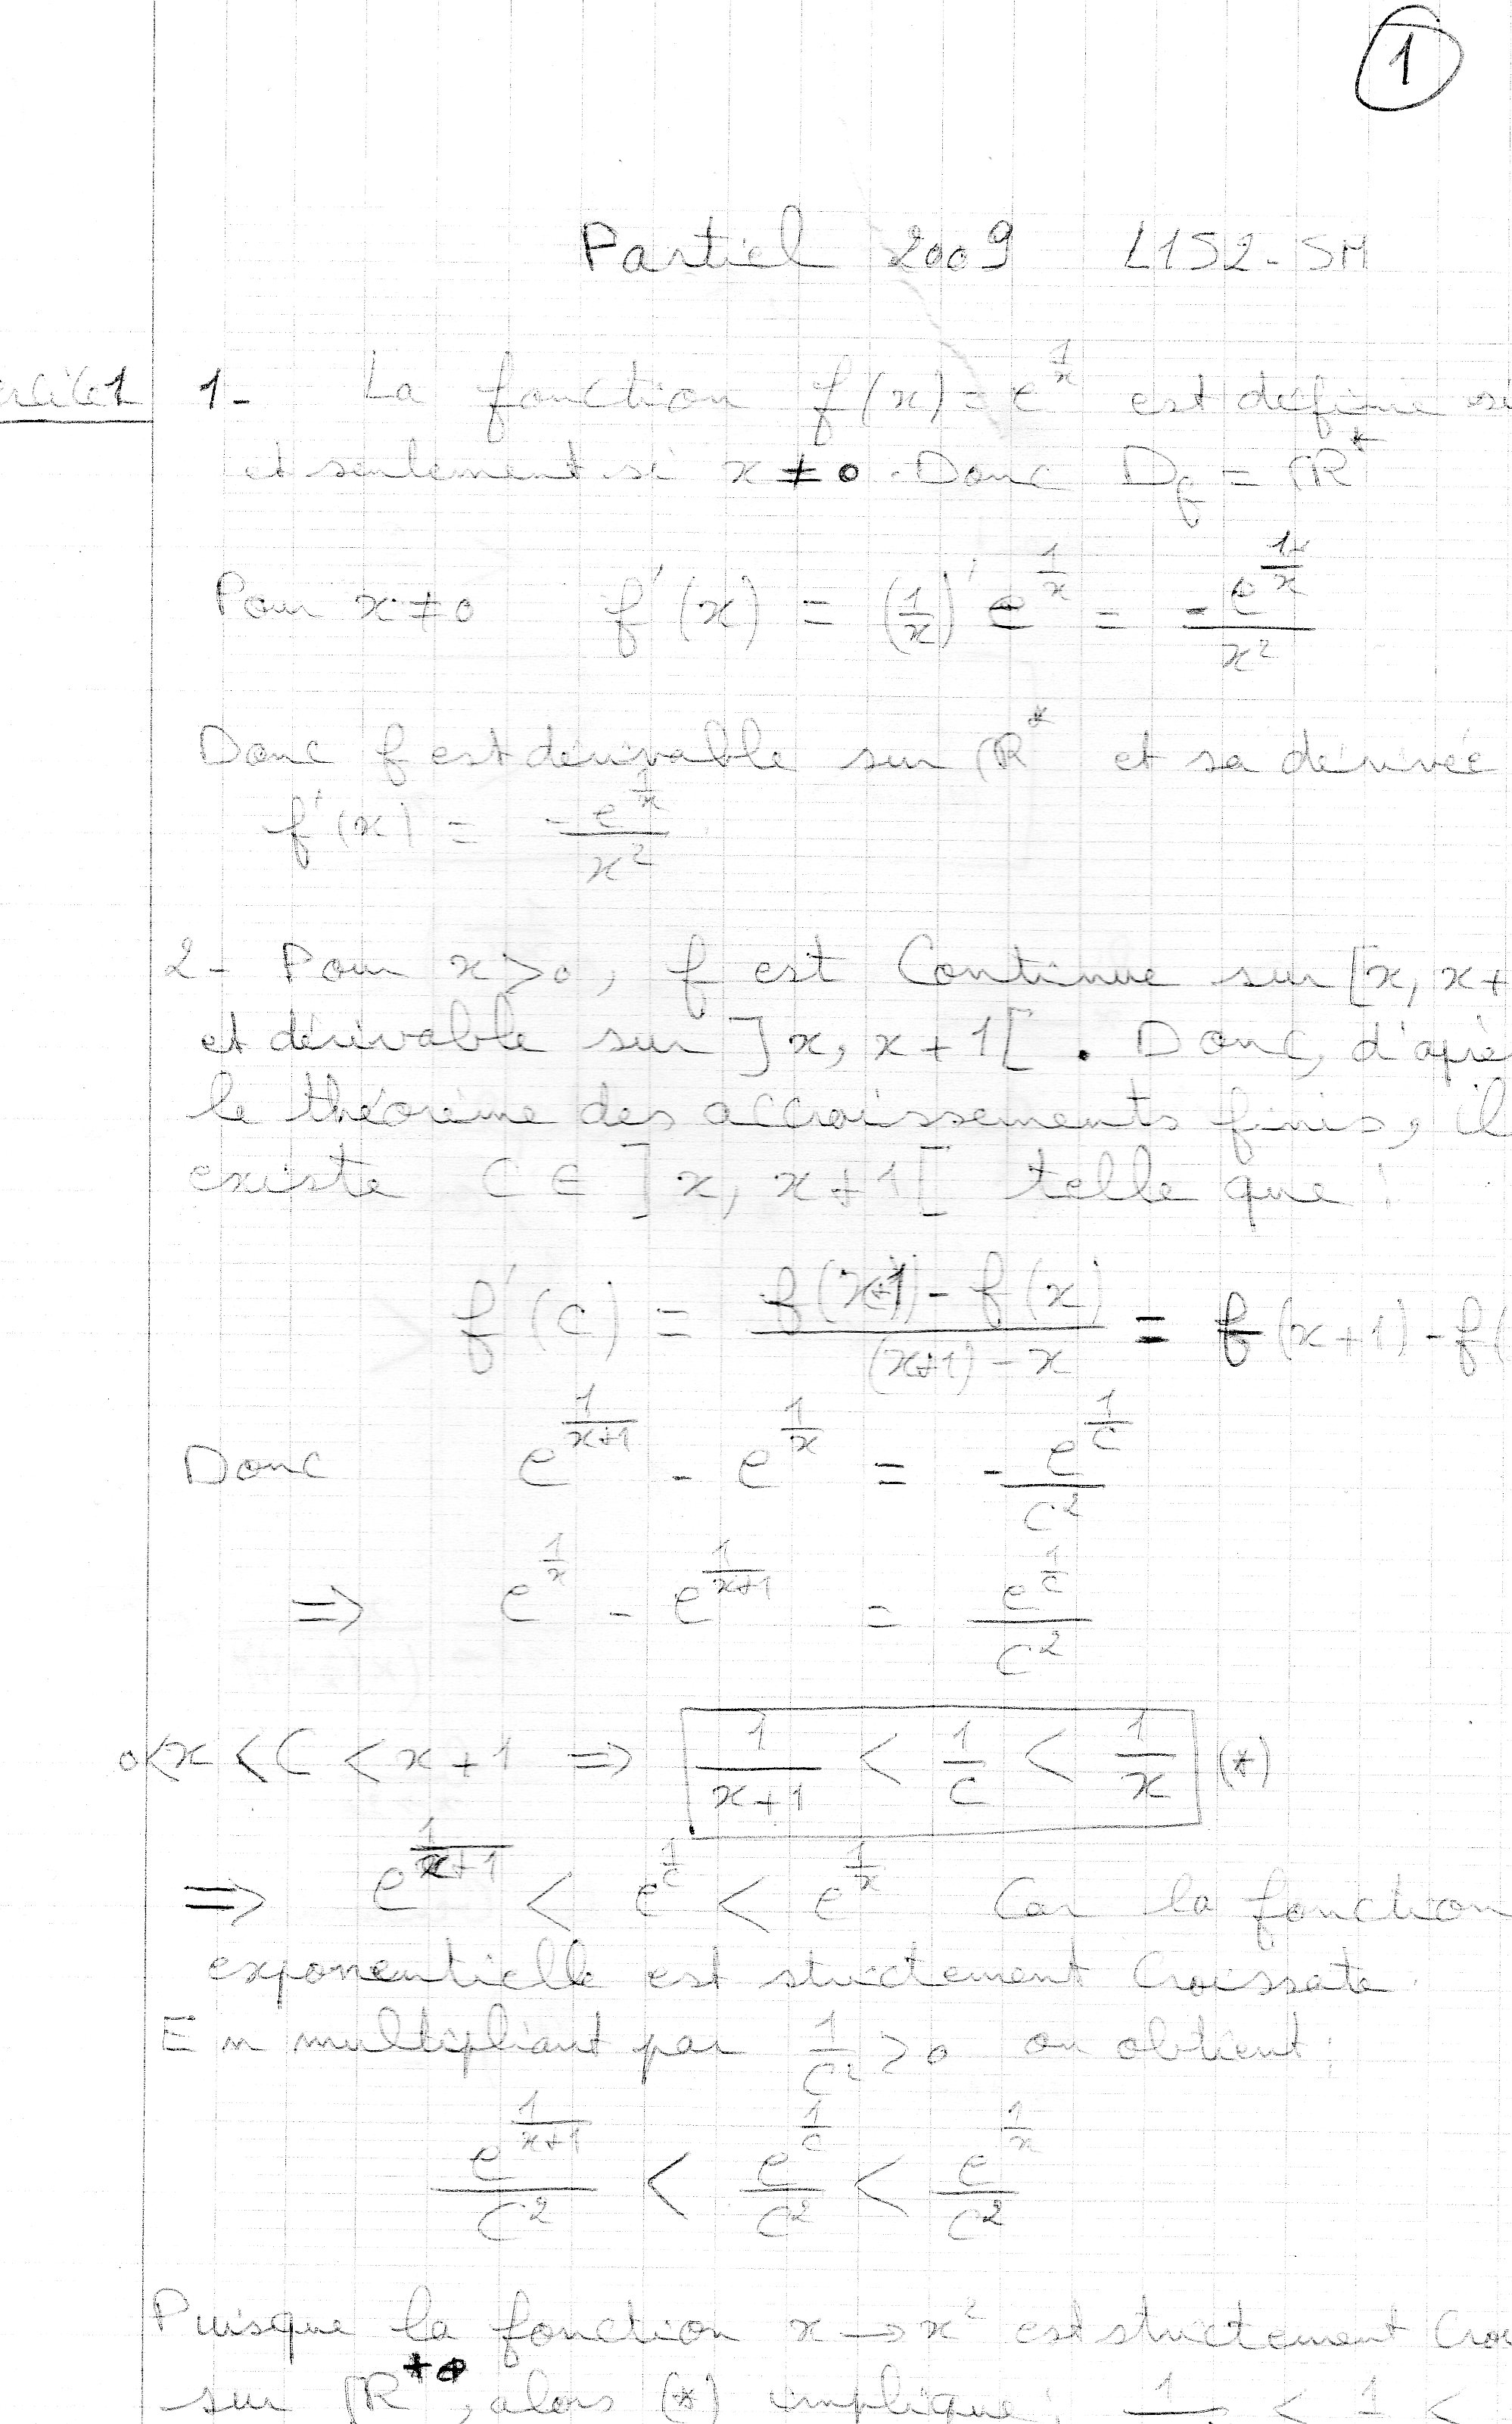 1
Partiel 2009 L1S2-SM
1- La fonction f(x) = e^{1/x} est définie si
et seulement si x ≠ 0. Donc D_f = ℝ*
Pour x ≠ 0 f'(x) = (1/x)' e^{1/x} = -e^{1/x}/x²
Donc f est dérivable sur ℝ* et sa dérivée
f'(x) = -e^{1/x}/x²
2- Pour x > 0, f est Continue sur [x, x+
et dérivable sur ]x, x+1[. Donc, d'aprè
le théorème des accroissements finis, il
existe C ∈ ]x, x+1[ telle que :
f'(c) = (f(x+1) - f(x))/((x+1) - x) = f(x+1) - f(
Donc e^{1/(x+1)} - e^{1/x} = -e^{1/c}/c²
=> e^{1/x} - e^{1/(x+1)} = e^{1/c}/c²
0 < x < C < x+1 => 1/(x+1) < 1/c < 1/x (*)
=> e^{1/(x+1)} < e^{1/c} < e^{1/x} Car la fonction
exponentielle est strictement Croissate.
En multipliant par 1/c² > 0 on obtient :
e^{1/(x+1)}/c² < e^{1/c}/c² < e^{1/x}/c²
Puisque la fonction x → x² est strictement Croi
sur ℝ^{+*}, alors (*) implique : 1 < 1 <